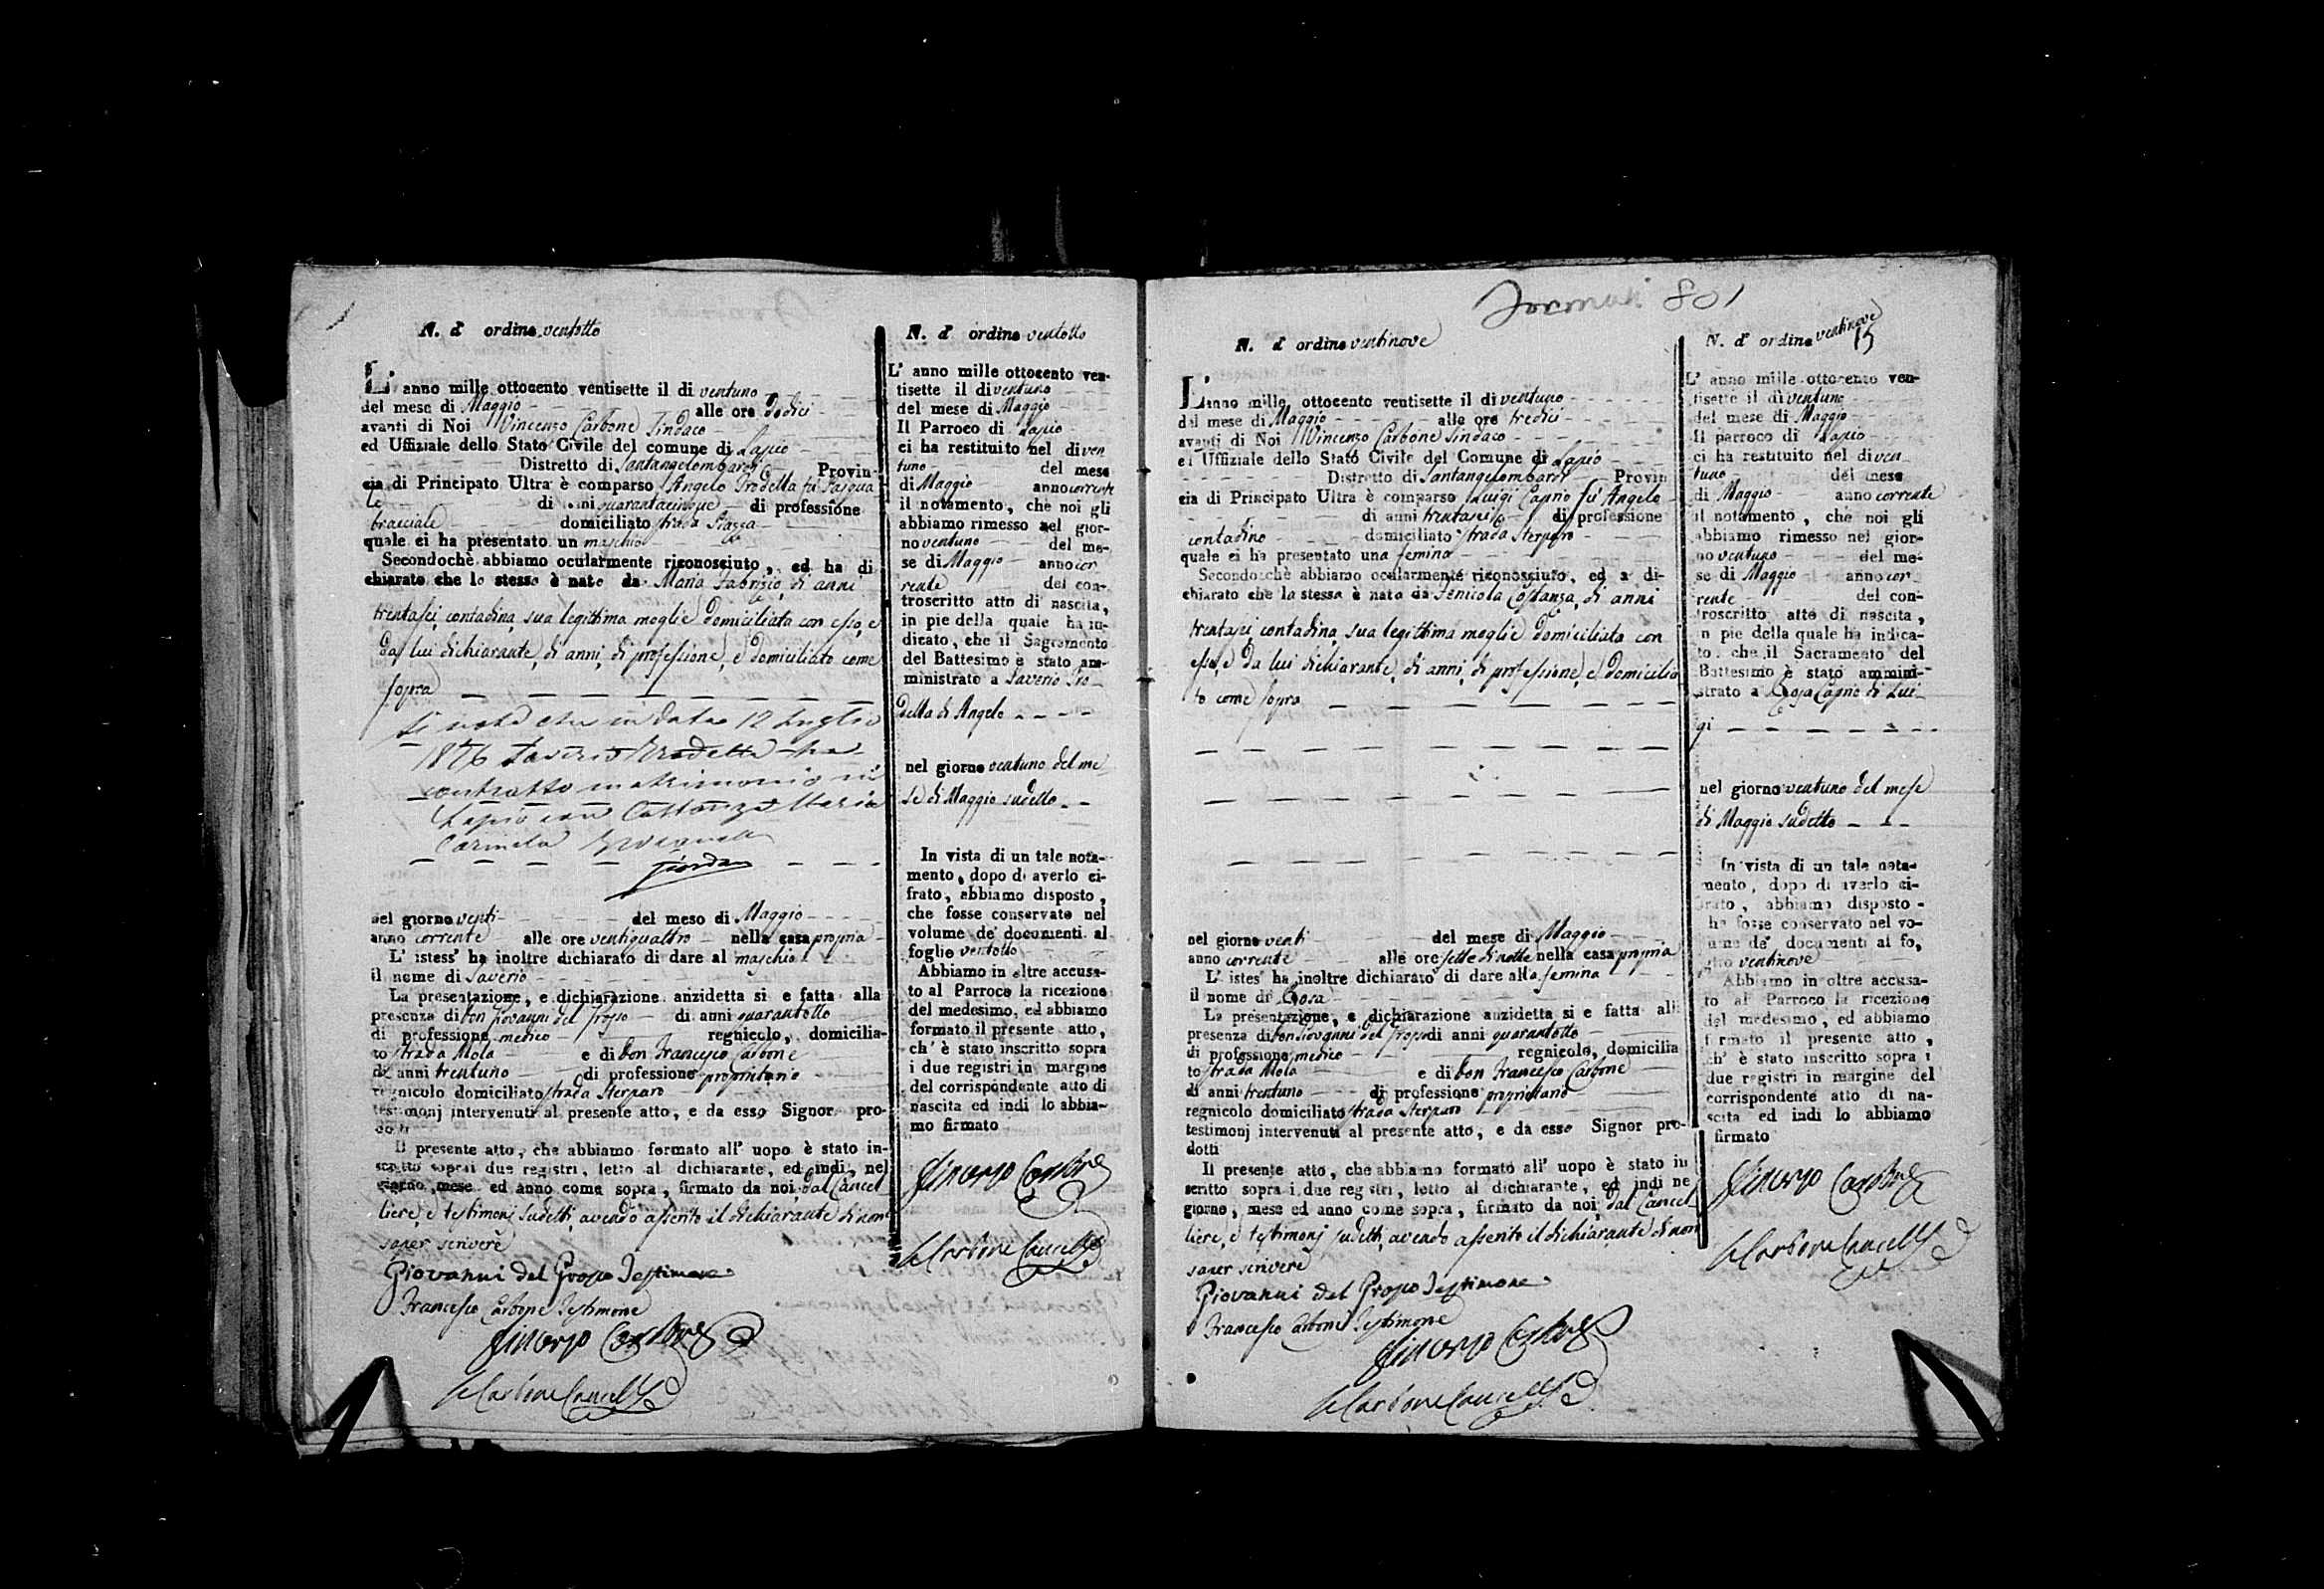 N. d' ordine ventotto
L' anno mille ottocento ventisette il di ventuno
del mese di Maggio alle ore dodici
avanti di Noi Vincenzo Carbone Sindaco
ed Uffiziale dello Stato Civile del comune di Lapio
Distretto di Santangelombardi Provin-
cia di Principato Ultra è comparso Angelo Trodella fu Pasqua
le di anni quarantacinque di professione
bracciale domiciliato strada Piazza
quale ei ha presentato un maschio
Secondochè abbiamo ocularmente riconosciuto, ed ha di
chiarato che lo stesso è nato da Maria Fabrizio, di anni
trentasei contadina, sua legittima moglie domiciliata con esso, e
da lui dichiarante, di anni, di professione, e domiciliato come
sopra
Si nota che in data 12 Luglio
1876 Saverio Trodella ha
contratto matrimonio in
Lapio con Costanza Maria
Carmela
nel giorno venti del mese di Maggio
anno corrente alle ore ventiquattro nella casa propria
L' istess' ha inoltre dichiarato di dare al maschio
il nome di Saverio
La presentazione, e dichiarazione anzidetta si e fatta alla
presenza di Don Giovanni del Grosso di anni quarantotto
di professione medico regnicolo, domicilia-
to strada Mola e di Don Francesco Carbone
di anni trentuno di professione proprietario
regnicolo domiciliato strada Sterparo
testimonj intervenuti al presente atto, e da esso Signor pro-
dotti
Il presente atto, che abbiamo formato all' uopo è stato in-
scritto sopra i due registri, letto al dichiarante, ed indi nel
giorno, mese ed anno come sopra, firmato da noi, dal Cancel
liere, e testimonj sudetti, avendo asserito il dichiarante di non
saper scrivere
Giovanni del Grosso Testimone
Francesco Carbone Testimone
Vincenzo Carbone
Carbone Cancell
N. d' ordine ventotto
L' anno mille ottocento ven-
tisette il di ventuno
del mese di Maggio
Il Parroco di Lapio
ci ha restituito nel di ven
tuno del mese
di Maggio anno corrente
il notamento, che noi gli
abbiamo rimesso nel gior-
no ventuno del me-
se di Maggio anno cor
rente del con-
troscritto atto di nascita,
in pie della quale ha in-
dicato, che il Sagramento
del Battesimo è stato am-
ministrato a Saverio Tro-
della di Angelo
nel giorno ventuno del me
se di Maggio sudetto
In vista di un tale nota-
mento, dopo di averlo ci-
frato, abbiamo disposto,
che fosse conservato nel
volume de' documenti al
foglio ventotto
Abbiamo in oltre accusa-
to al Parroco la ricezione
del medesimo, ed abbiamo
formato il presente atto,
ch' è stato inscritto sopra
i due registri in margine
del corrispondente atto di
nascita ed indi lo abbia-
mo firmato
Vincenzo Carbone
Carbone Cancell
801
N. d' ordine ventinove
L' anno mille ottocento ventisette il di ventuno
del mese di Maggio alle ore tredici
avanti di Noi Vincenzo Carbone Sindaco
ed Uffiziale dello Stato Civile del Comune di Lapio
Distretto di Santangelombardi Provin
cia di Principato Ultra è comparso Luigi Caprio fu Angelo
di anni trentasei di professione
contadino domiciliato strada Sterparo
quale ei ha presentato una femina
Secondochè abbiamo ocularmente riconosciuto, ed a di-
chiarato che la stessa è nata da Fenicola Costanza, di anni
trentasei contadina, sua legittima moglie domiciliata con
esso, e da lui dichiarante, di anni, di professione, e domicilia
to come sopra
nel giorno venti del mese di Maggio
anno corrente alle ore sette di notte nella casa propria
L' istes' ha inoltre dichiarato di dare alla femina
il nome di Rosa
La presentazione, e dichiarazione anzidetta si e fatta all
presenza di Don Giovanni del Grosso di anni quarantotto
di professione medico regnicolo, domicilia
to strada Mola e di Don Francesco Carbone
di anni trentuno di professione proprietario
regnicolo domiciliato strada Sterparo
testimonj intervenuti al presente atto, e da esso Signor pro-
dotti
Il presente atto, che abbiamo formato all' uopo è stato in
scritto sopra i due registri, letto al dichiarante, ed indi ne
giorno, mese ed anno come sopra, firmato da noi, dal Cancel-
liere, e testimonj sudetti, avendo asserito il dichiarante di non
saper scrivere
Giovanni del Grosso Testimone
Francesco Carbone Testimone
Vincenzo Carbone
Carbone Cancell
N. d' ordine ventinove
15
L' anno mille ottocento ven-
tisette il di ventuno
del mese di Maggio
Il parroco di Lapio
ci ha restituito nel di ven
tuno del mese
di Maggio anno corrente
il notamento, che noi gli
abbiamo rimesso nel gior-
no ventuno del me-
se di Maggio anno cor
rente del con-
troscritto atto di nascita,
in pie della quale ha indica-
to, che il Sacramento del
Battesimo è stato ammini-
strato a Rosa Caprio di Lui-
gi
nel giorno ventuno del mese
di Maggio sudetto
In vista di un tale nota-
mento, dopo di averlo ci-
frato, abbiamo disposto
ha fosse conservato nel vo-
lume de' documenti al fo,
glio ventinove
Abbiamo in oltre accusa-
to al Parroco la ricezione
del medesimo, ed abbiamo
firmato il presente atto,
ch' è stato inscritto sopra i
due registri in margine del
corrispondente atto di na-
scita ed indi lo abbiamo
firmato
Vincenzo Carbone
Carbone Cancell